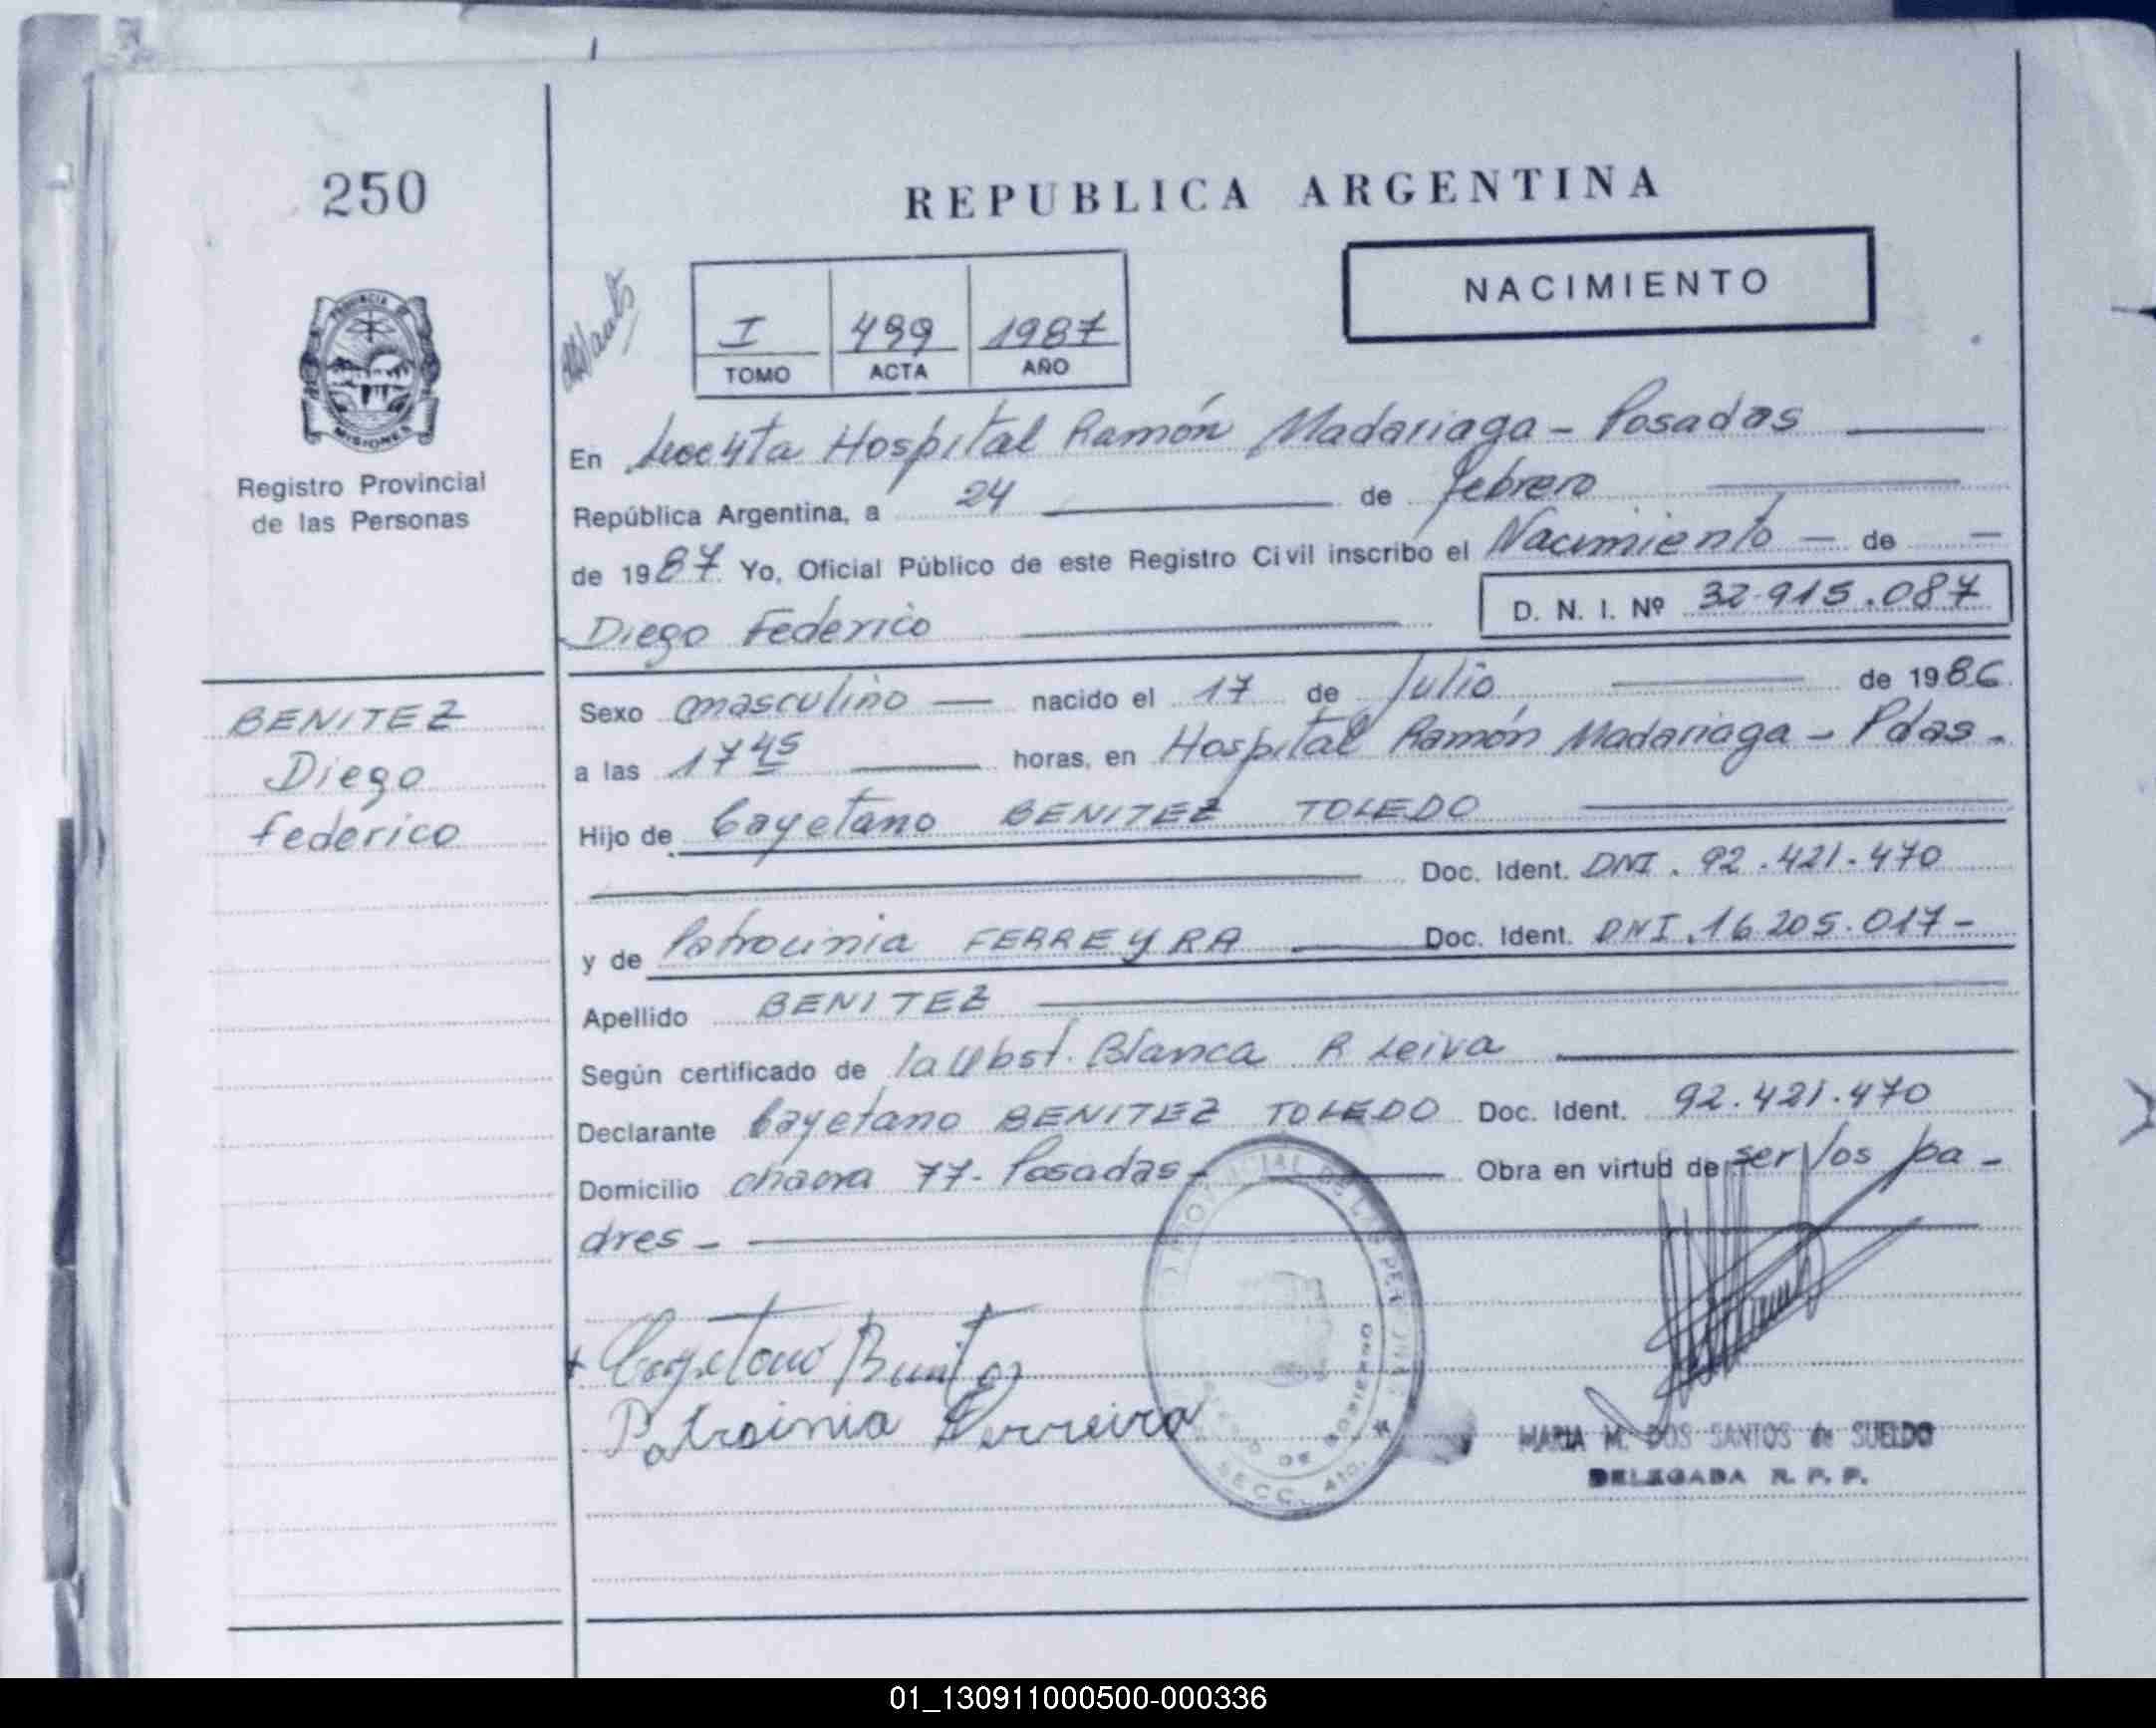 250
REPUBLICA ARGENTINA
NACIMIENTO
I 499 1987
TOMO ACTA AÑO
PROVINCIA DE
MISIONES
Registro Provincial
de las Personas
En Hospital Ramón Madariaga - Posadas
República Argentina, a 24 de febrero
de 1987 Yo, Oficial Público de este Registro Civil inscribo el Nacimiento - de -
D. N. I. Nº 32.915.087
Diego Federico
BENITEZ
Diego
federico
Sexo masculino — nacido el 17 de Julio de 1986.
a las 17 45 horas, en Hospital Ramón Madariaga - Pdas.
Hijo de Cayetano BENITEZ TOLEDO
Doc. Ident. DNI. 92.421.470
y de Patrocinia FERREYRA Doc. Ident. DNI. 16.205.017-
Apellido BENITEZ
Según certificado de la Obst. Blanca R Leiva
Declarante Cayetano BENITEZ TOLEDO Doc. Ident. 92.421.470
Domicilio chacra 77- Posadas- Obra en virtud de ser los pa-
dres -
Cayetano Benitez
Patrocinia Ferreira
MARIA M. DOS SANTOS de SUELDO
DELEGADA R. P. P.
01_130911000500-000336